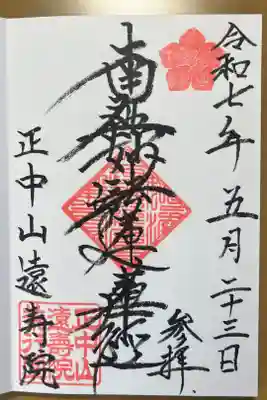 令和七年五月二十三日
参拝
南無妙法蓮華経
正中山遠寿院
正中山
遠壽院